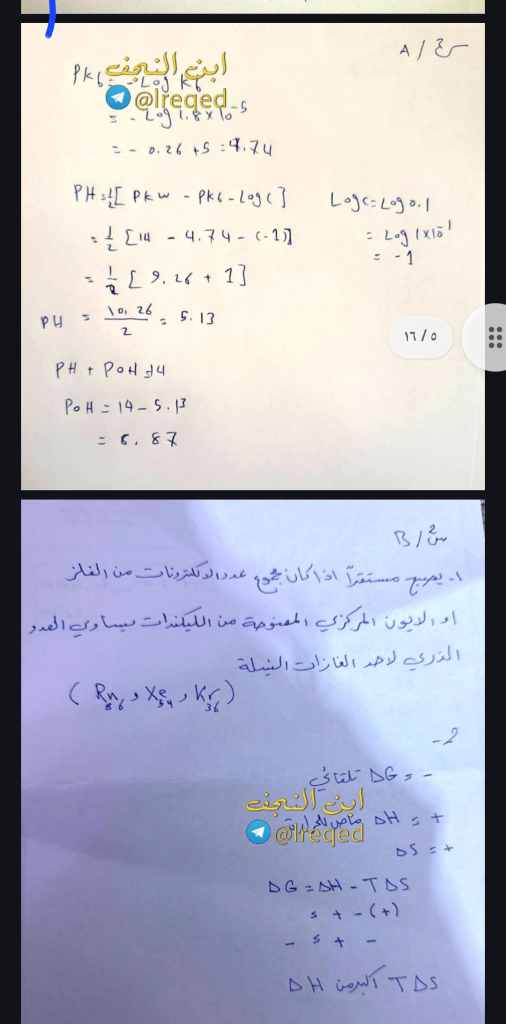 س٢ / A
PKb = - Log Kb
ابن النجف
@Ireqed
= - Log 1.8 x 10^-5
= - 0.26 + 5 = 4.74
PH = 1/2 [ PKw - PKb - Log C ]
LogC = Log 0.1
= 1/2 [14 - 4.74 - (-1)]
= Log 1x10^-1
= -1
= 1/2 [ 9.26 + 1 ]
PH = 10.26/2 = 5.13
١٦/٥
PH + POH = 14
POH = 14 - 5.13
= 8.87
س٢ / B
١- يصبح مستقراً اذا كان مجموع عدد الالكترونات من الفلز
او الايون المركزي الممنوحة من الليكندات يساوي العدد
الذري لاحد الغازات النبيلة
( Rn86 و Xe54 و Kr36 )
-2
ΔG = - تلقائي
ابن النجف
ΔH = + ماص للحرارة
@Ireqed
ΔS = +
ΔG = ΔH - TΔS
= + - (+)
- = + -
TΔS اكبر من ΔH